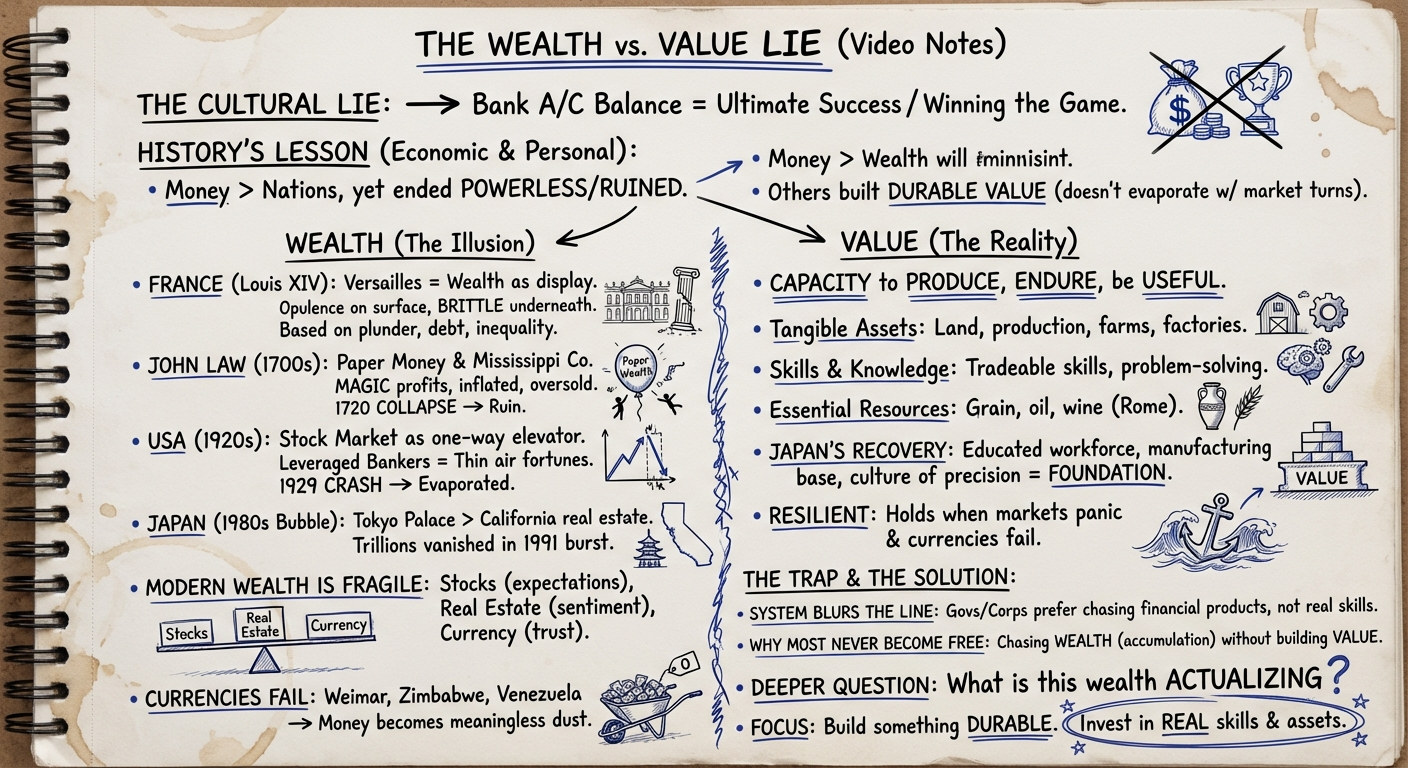 THE WEALTH vs. VALUE LIE (Video Notes)
THE CULTURAL LIE: → Bank A/C Balance = Ultimate Success / Winning the Game.
$
HISTORY'S LESSON (Economic & Personal):
• Money > Nations, yet ended POWERLESS/RUINED.
• Money > Wealth will
• Others built DURABLE VALUE (doesn't evaporate w/ market turns).
WEALTH (The Illusion)
• FRANCE (Louis XIV): Versailles = Wealth as display.
Opulence on surface, BRITTLE underneath.
Based on plunder, debt, inequality.
• JOHN LAW (1700s): Paper Money & Mississippi Co.
MAGIC profits, inflated, oversold.
1720 COLLAPSE → Ruin.
Popor
Wealth
• USA (1920s): Stock Market as one-way elevator.
Leveraged Bankers = Thin air fortunes.
1929 CRASH → Evaporated.
• JAPAN (1980s Bubble): Tokyo Palace > California real estate.
Trillions vanished in 1991 burst.
• MODERN WEALTH IS FRAGILE: Stocks (expectations),
Real Estate (sentiment),
Currency (trust).
Stecks
Real
Estate
Currency
• CURRENCIES FAIL: Weimar, Zimbabwe, Venezuela
→ Money becomes meaningless dust.
0
VALUE (The Reality)
• CAPACITY to PRODUCE, ENDURE, be USEFUL.
• Tangible Assets: Land, production, farms, factories.
• Skills & Knowledge: Tradeable skills, problem-solving.
• Essential Resources: Grain, oil, wine (Rome).
• JAPAN'S RECOVERY: Educated workforce, manufacturing
base, culture of precision = FOUNDATION.
VALUE
• RESILIENT: Holds when markets panic
& currencies fail.
THE TRAP & THE SOLUTION:
• SYSTEM BLURS THE LINE: Govs/Corps prefer chasing financial products, not real skills.
• WHY MOST NEVER BECOME FREE: Chasing WEALTH (accumulation) without building VALUE.
• DEEPER QUESTION: What is this wealth ACTUALIZING?
• FOCUS: Build something DURABLE. Invest in REAL skills & assets.